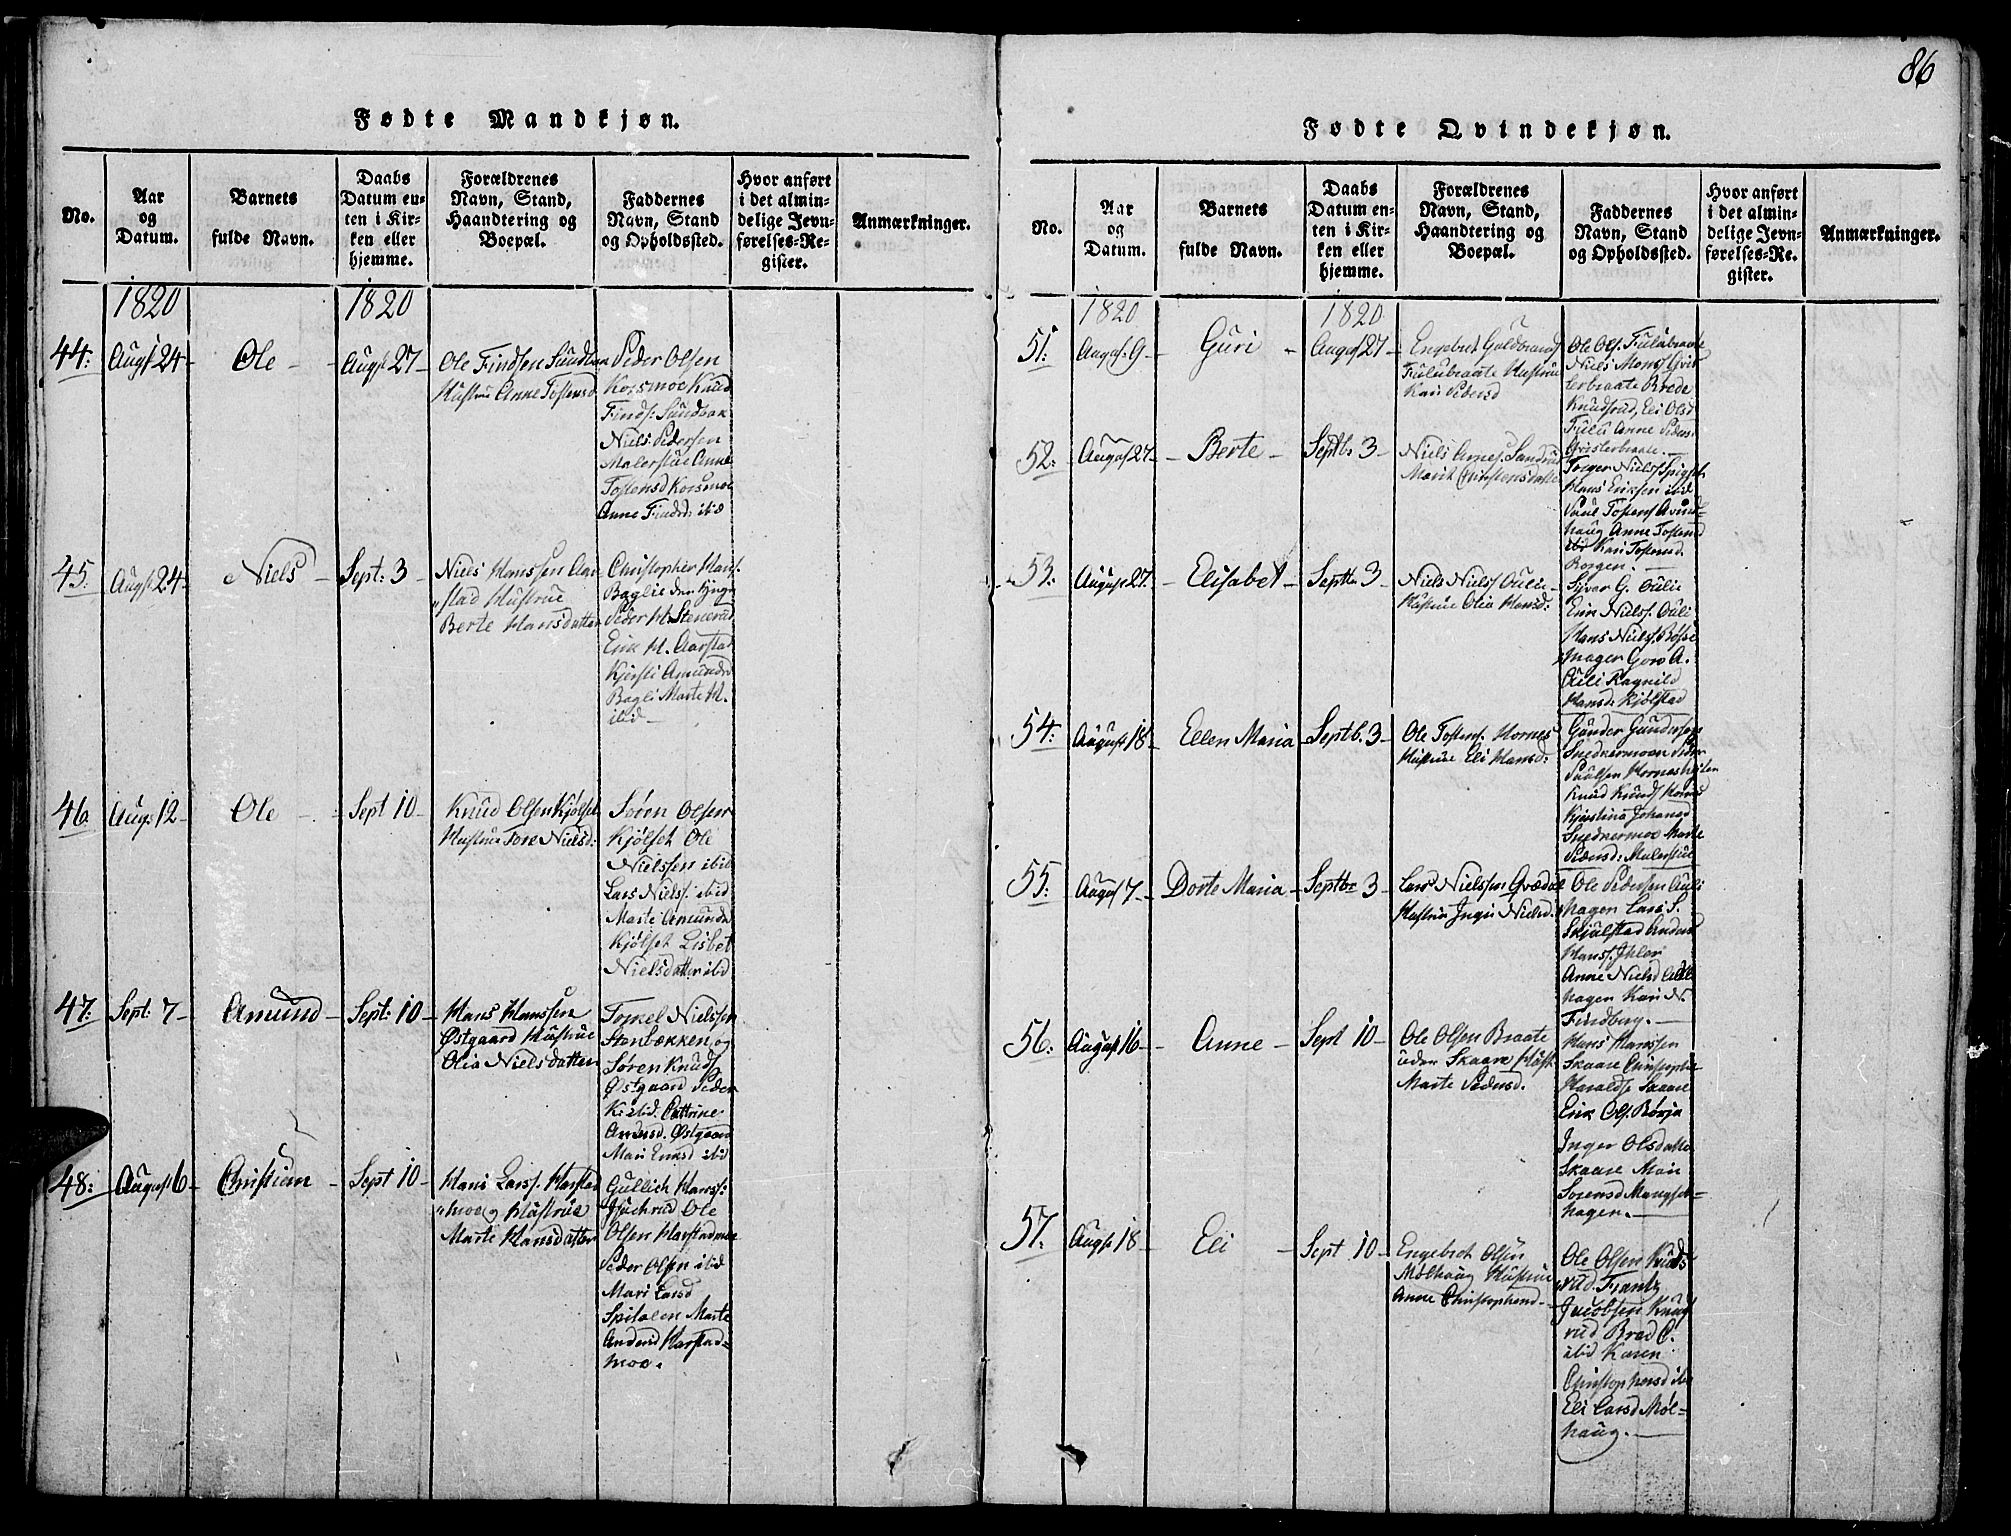 86
Fødte Mandkjøn.
No.
Aar
og
Datum.
Barnets
fulde Navn.
Daabs
Datum en-
ten i Kir-
ken eller
hjemme.
Forældrenes
Navn, Stand,
Haandtering og
Boepæl.
Faddernes
Navn, Stand
og Opholdssted.
Hvor anført
i det almin-
delige Jevn-
førelses-Re-
gister.
Anmærkninger.
1820
1820
44:
Augst 24
Ole
Augst 27
Ole Findsen
Hustrue Anne Tostensd
Peder Olsen
Korsmoe Knud
Finds:
Niels Pedersen
Malerstue Anne
Tostensd Korsmoe
Anne Findsd: ibid
45.
Augst 24
Niels
Sept: 3
Niels Hanssen Aar-
stad Hustrue
Berte Hansdatter
Christopher Hans:
Baglie den yngr
Peder H. Stenerud
Erik H. Aarstad
Kjersti Amundsd
Bagli Marte H.
ibid
46.
Aug: 12
Ole
Sept 10
Knud Olsen Kjølset
Hustrue Tore Nielsd:
Søren Olsen
Kjølset Ole
Nielssen ibid
Lars Nielss: ibid
Marte Amundsd
Kjølset Lisbet
Nielsdatter ibid
47:
Sept: 7
Amund
Sept: 10
Hans Hanssen
Østgaard Hustrue
Olia Nielsdatter
Torkel Nielssen
Stenbækken og
Søren Knuds
Østgaard Peder
K. ibid. Cattrine
Amundsd. Østgaard
Mari Eriksd ibid
48:
August 6
Christian
Sept 10
Hans Larss: Harstad
moe og Hustrue
Marte Hansdatter
Gullich Hanss:
Ole
Olsen Harstadmoe
Peder Olsen ibid
Mari Larsd
Spitalen Marte
Andersd Harstad=
moe.
Fødte Qvindekjøn.
No.
Aar
og
Datum.
Barnets
fulde Navn.
Daabs
Datum en-
ten i Kir-
ken eller
hjemme.
Forældrenes
Navn, Stand,
Haandtering og
Boepæl.
Faddernes
Navn, Stand
og Opholdssted.
Hvor anført
i det almin-
delige Jevn-
førelses-Re-
gister.
Anmærkninger.
1820
1820
51:
August 9
Guri
August 27
Engebret Guldbrands
Fulubraate Hustrue
Kari Pedersd
Ole Ols. Fulubraate
Niels Monss Qvis
terbraate Brede
Knudsrud, Eli Olsd
Fulu Anne Peders.
Qvisterbraate.
52:
August 27
Berte
Septb: 3
Niels Arnes. Sandrud
Marit Christensdatter
Torger Nielss
Hans Eriksen ibid
Paul Tostens Avind=
haug Anne Tostensd
ibid Kari Tostensd.
Borgen.
53.
August 27
Elisabet
Septbr 3
Niels Nielss Oulie
Hustrue Olia Hansd:
Syver G. Oulie
Erik Nielss. Ouli
Hans Nielss. Bøsse
mager Goro A.
Ouli Ragnild
Hansd: Kjølstad
54:
August 18
Ellen Maria
Septb. 3
Ole Tostens. Hornes
Hustrue Eli Hansd:
Gunder Gundersen
Snedkermoen Peder
Paulsen Horneshoiten
Knud Knuds Hornes
Kjerstina Johansd
Snedkermoe Marte
Pedersd: Malerstue
55:
August 7
Dorte Maria
Septbr 3
Lars Nielssen Qvædal
Hustrue Inger Nielsd.
Ole Pedersen Auli
hagen Lars S.
Skjulstad
Hanss. Ihler
Anne Nielsd Auli
hagen Kari N.
Findberg.
56:
August 16
Anne
Sept 10
Ole Olsen Braate
uder Skaare Hustr
Marte Pedersd.
Hans Hanssen
Skaare Christopher
Haralds. Skaare
Erik Ols. Børju
Inger Olsdatter
Skaare Mari
Sorensd Mangset=
hagen.
57.
Augst 18
Eli
Sept 10
Engebret Olsen
Mølhaug Hustrue
Anne Christophersd
Ole Olsen Knuds
rud Frantz
Jacobsen Knuds
rud Bred O.
ibid Karen
Christophersd ibid
Eli Larsd Møl=
haug.